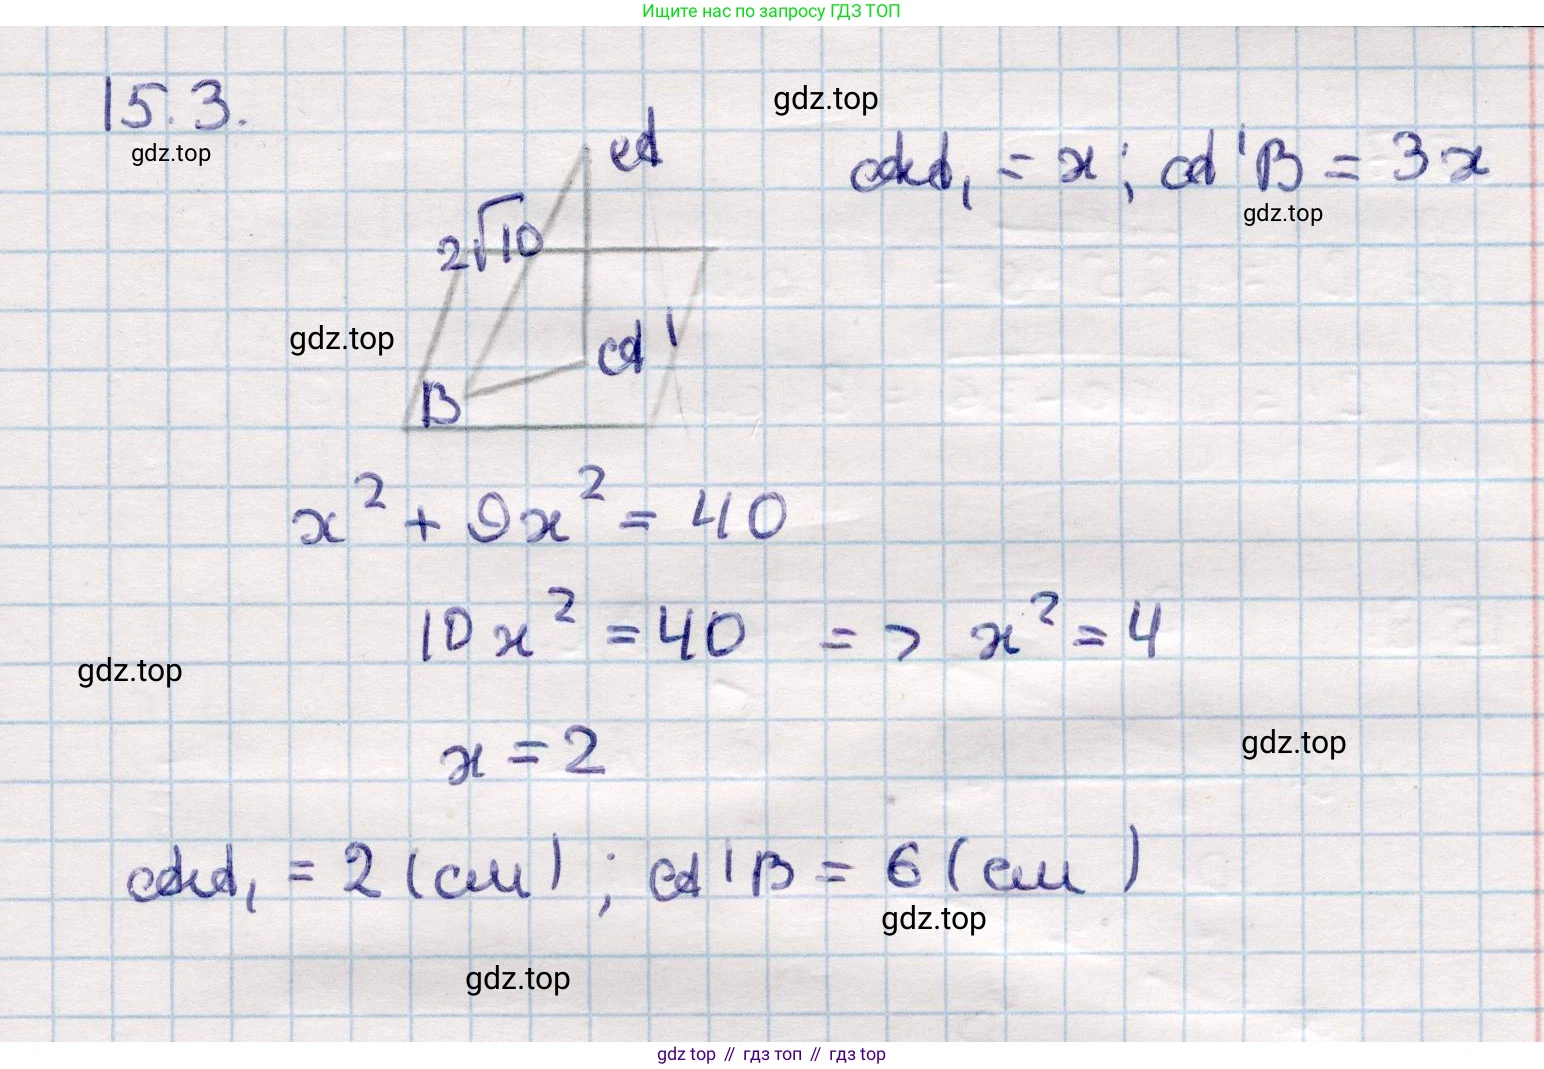 Ищите нас по запросу ГДЗ ТОП
15.3.
gdz.top
gdz.top
A
AA₁ = x; A'B = 3x
gdz.top
2√10
gdz.top
A'
B
x² + 9x² = 40
10x² = 40 => x² = 4
gdz.top
x = 2
gdz.top
AA₁ = 2 (см); A'B = 6 (см)
gdz.top
gdz.top
gdz top // гдз топ // gdz top